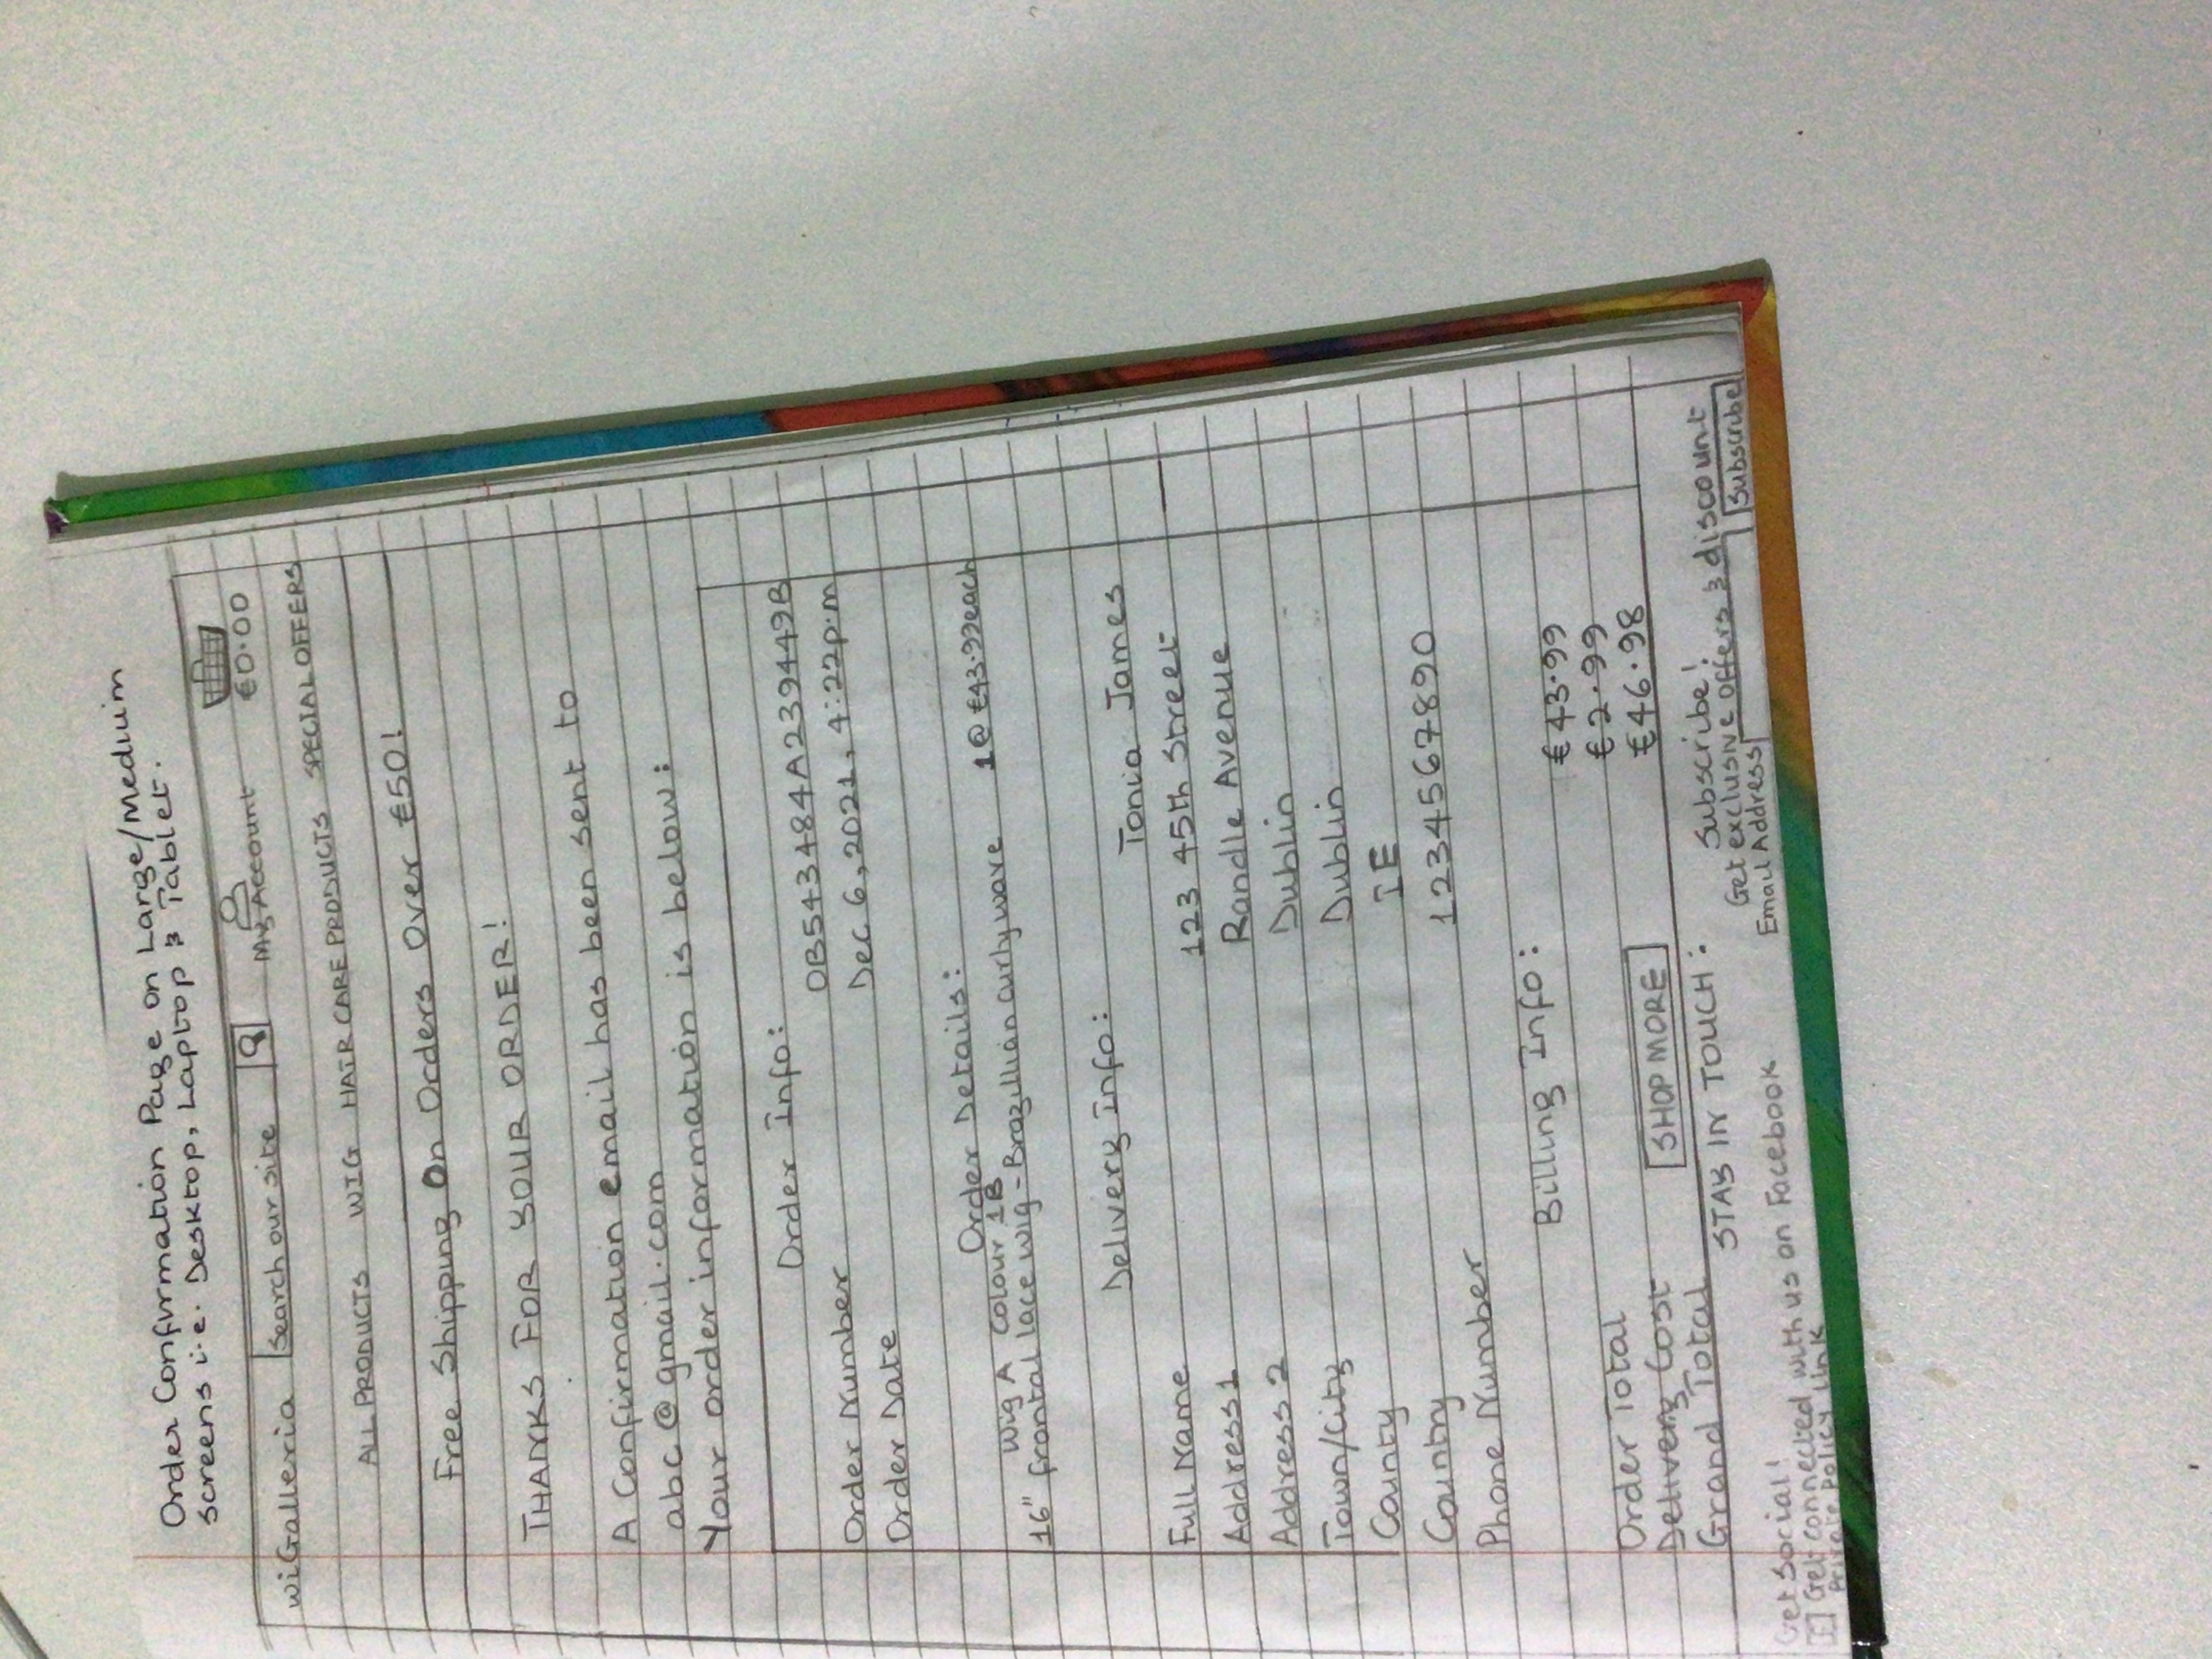 Order Confirmation Page on Large/Medium
Screens i.e. Desktop, Laptop & Tablet.
wiGalleria Search our site My Account €0.00
ALL PRODUCTS WIG HAIR CARE PRODUCTS SPECIAL OFFERS
Free Shipping On Orders Over €50!
THANKS FOR YOUR ORDER!
A Confirmation email has been sent to
abc@gmail.com
Your order information is below:
Order Info:
Order Number OB543484A239449B
Order Date Dec 6, 2021, 4:22p.m
Order Details:
Wig A Colour 1B
16" frontal lace wig - Brazillian curly wave 1@€43.99each
Delivery Info:
Full Name Tonia James
Address 1 123 45th Street
Address 2 Randle Avenue
Town/City Dublin
County Dublin
Country IE
Phone Number 1234567890
Billing Info:
Order Total €43.99
Delivery Cost €2.99
Grand Total €46.98
SHOP MORE
STAY IN TOUCH:
Get Social! Subscribe!
F Get connected with us on Facebook Get exclusive offers & discount
Private Policy Link Email Address Subscribe